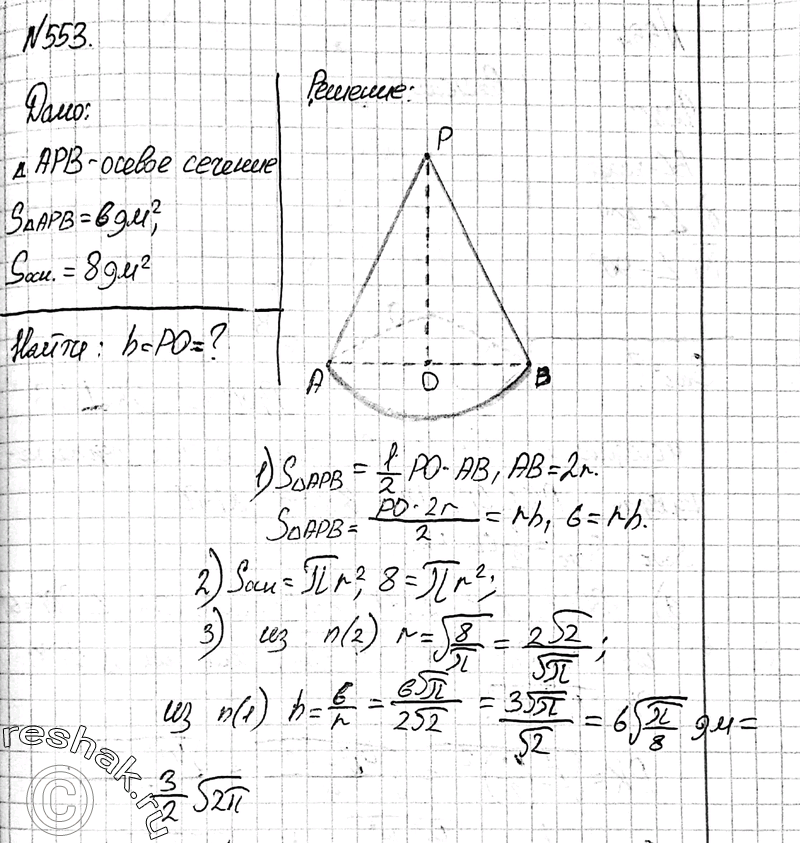 N553.
Дано:
Решение:
△APB - осевое сечение
S△APB = 6 дм²,
Sосн. = 8 дм²
Найти: h = PO = ?
P
A
O
B
1) S△APB = 1/2 PO · AB, AB = 2r.
S△APB = PO · 2r / 2 = rh, 6 = rh.
2) Sосн = πr², 8 = πr²;
3) из п(2) r = √(8/π) = 2√2/√π;
из п(1) h = 6/r = 6√π/2√2 = 3√π/√2 = 6√(π/8) дм =
3/2 √2π
reshak.ru
©